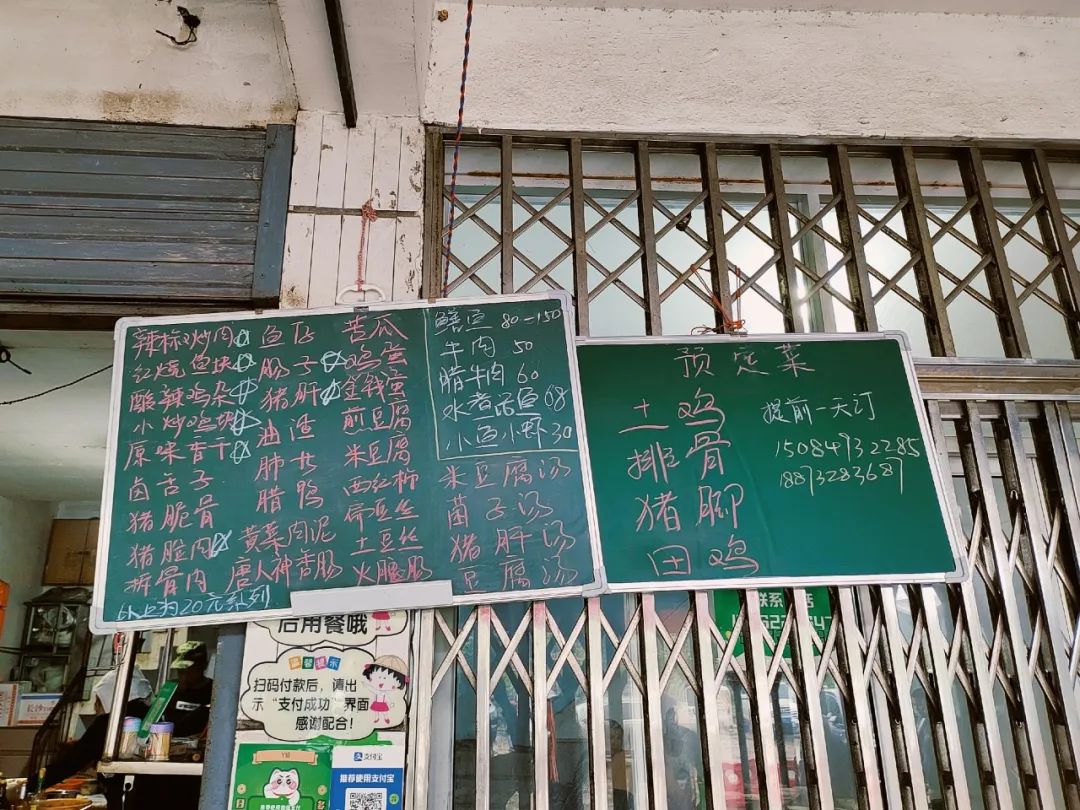 辣椒炒肉☆
红烧鱼块☆
酸辣鸡杂☆
小炒鸡块☆
原味香干☆
卤舌子
猪脆骨
猪脸肉☆
拆骨肉
以上均20元系列
鱼仔
肠子☆
猪肝☆
油渣
肺片
腊鸭
黄菜肉泥
唐人神香肠
苦瓜
鸡蛋
金钱蛋
煎豆腐
米豆腐
西红柿
扁豆丝
土豆丝
火腿肠
鳝鱼 80-150
牛肉 50
腊牛肉 60
水煮活鱼 68
小鱼小虾30
米豆腐汤
菌子汤
猪肝汤
豆腐汤
预定菜
土鸡
排骨
猪脚
田鸡
提前一天订
15084932285
18873283687
后用餐哦
温馨提示
扫码付款后，请出
示“支付成功”界面
感谢配合！
支付宝
推荐使用支付宝